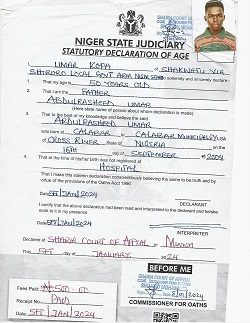 NIGER STATE JUDICIARY
STATUTORY DECLARATION OF AGE
I, UMAR KOFA of SHAKWATU VIA
SHIRORO LOCAL GOVT AREA NIGER STATE do solemnly and sincerely declare:-
1. That my age is 50 YEARS OLD
2. That I am the FATHER
ABDULRASHEED UMAR
(Here state name of person about whom declaration is made)
3. That to the best of my knowledge and believe the said
ABDULRASHEED UMAR
was born at CALABAR in CALABAR MUNICIPAL
of CROSS RIVER State of NIGERIA on the
16TH day of SEPTEMBER 2004
4. That at the time of his/her birth was not registered at
HOSPITAL
That I make this solemn declaration conscientiously believing the same to be truth and by
virtue of the provisions of the Oaths Act 1990
Date 5TH JAN/2024
DECLARANT
I certify that the above declaration had been read and interpreted to the declarant and he/she
mark to it is my presence
Date 5TH JAN/2024
INTERPRETER
Declared at SHARIA COURT OF APPEAL MINNA
This 5TH of JANUARY 2024
BEFORE ME
Fees Paid: ₦500-00
Receipt No PAID
Date 5TH JAN/2024
COMMISSIONER FOR OATHS